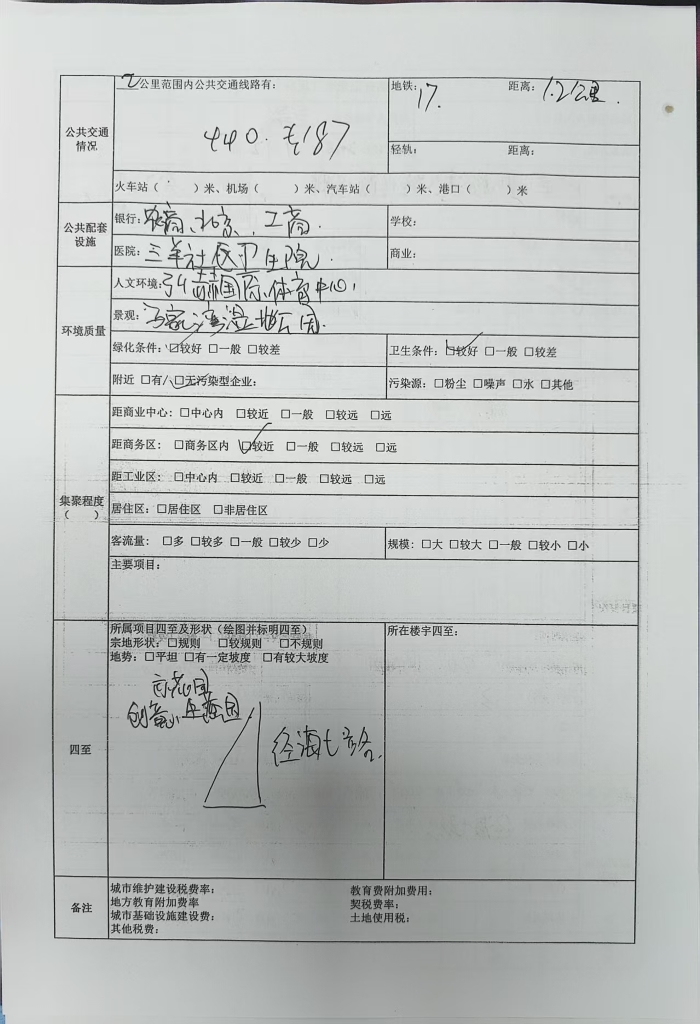 2公里范围内公共交通线路有：
地铁：17. 距离：1.2公里.
公共交通情况
440. 专187
轻轨： 距离：
火车站（ ）米、机场（ ）米、汽车站（ ）米、港口（ ）米
公共配套设施
银行：农商、北京、工商.
学校：
医院：三羊社区卫生院.
商业：
环境质量
人文环境：国际体育中心,
景观：马家湾湿地公园.
绿化条件：☑较好 □一般 □较差
卫生条件：☑较好 □一般 □较差
附近 □有/☑无污染型企业：
污染源：□粉尘 □噪声 □水 □其他
集聚程度（ ）
距商业中心：□中心内 □较近 □一般 □较远 □远
距商务区：□商务区内 ☑较近 □一般 □较远 □远
距工业区：□中心内 □较近 □一般 □较远 □远
居住区：□居住区 □非居住区
客流量：□多 □较多 □一般 □较少 □少
规模：□大 □较大 □一般 □较小 □小
主要项目：
四至
所属项目四至及形状（绘图并标明四至）
宗地形状：□规则 □较规则 □不规则
地势：□平坦 □有一定坡度 □有较大坡度
所在楼宇四至：
创意
经海七路.
备注
城市维护建设税费率：
教育费附加费用：
地方教育附加费率
契税费率；
城市基础设施建设费：
土地使用税：
其他税费：